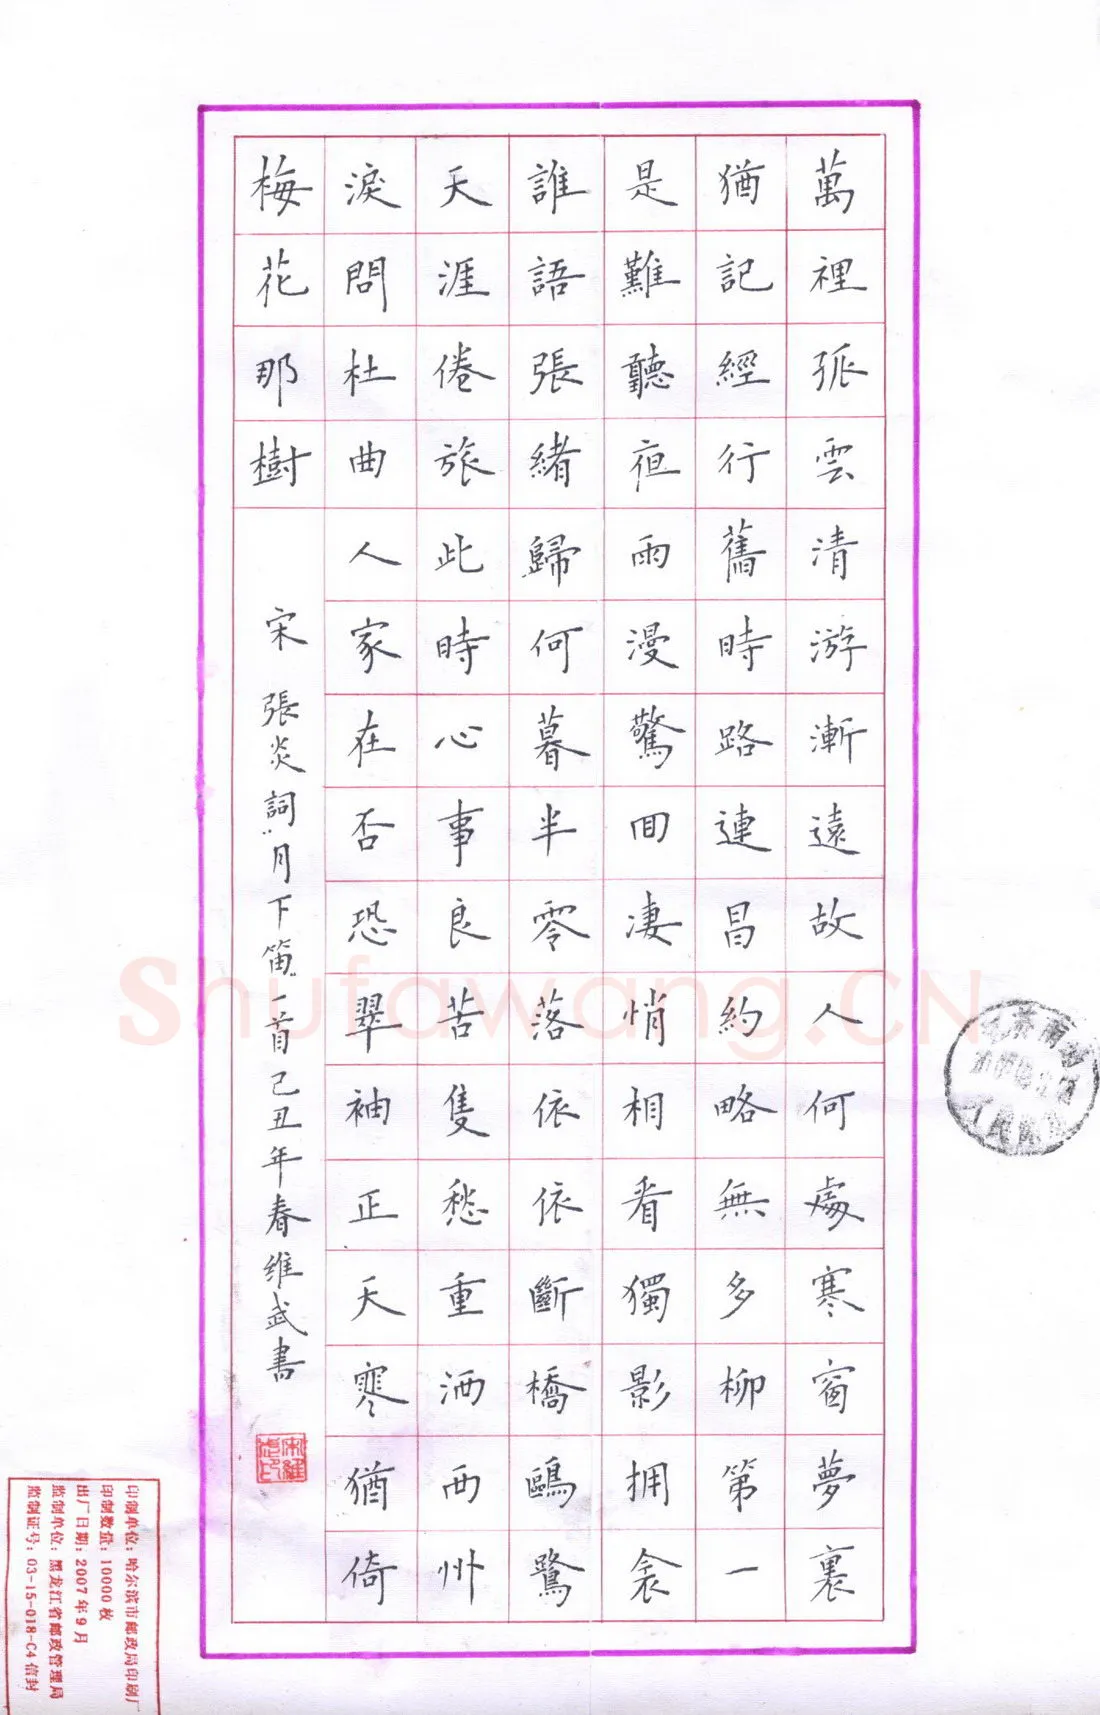 萬裡孤雲清游漸遠故人何處寒窗夢裏
猶記經行舊時路連昌約略無多柳第一
是難聽夜雨漫驚囬凄悄相看獨影拥衾
誰語張緒歸何暮半零落依依斷橋鷗鷺
天涯倦旅此時心事良苦隻愁重洒西州
淚問杜曲人家在否恐翠袖正天寒猶倚
梅花那樹
宋 張炎詞"月下笛"一首己丑年春维武書
宋維武印
Shufawang.CN
印制单位：哈尔滨市邮政局印刷厂
印制数量：10000枚
出厂日期：2007年9月
监制单位：黑龙江省邮政管理局
监制证号：03-15-018-C4信封